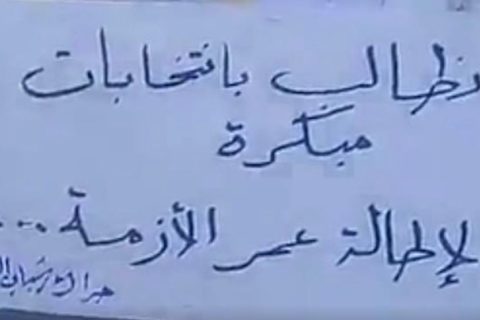 نطالب بانتخابات
مبكرة
لإطالة عمر الأزمة...